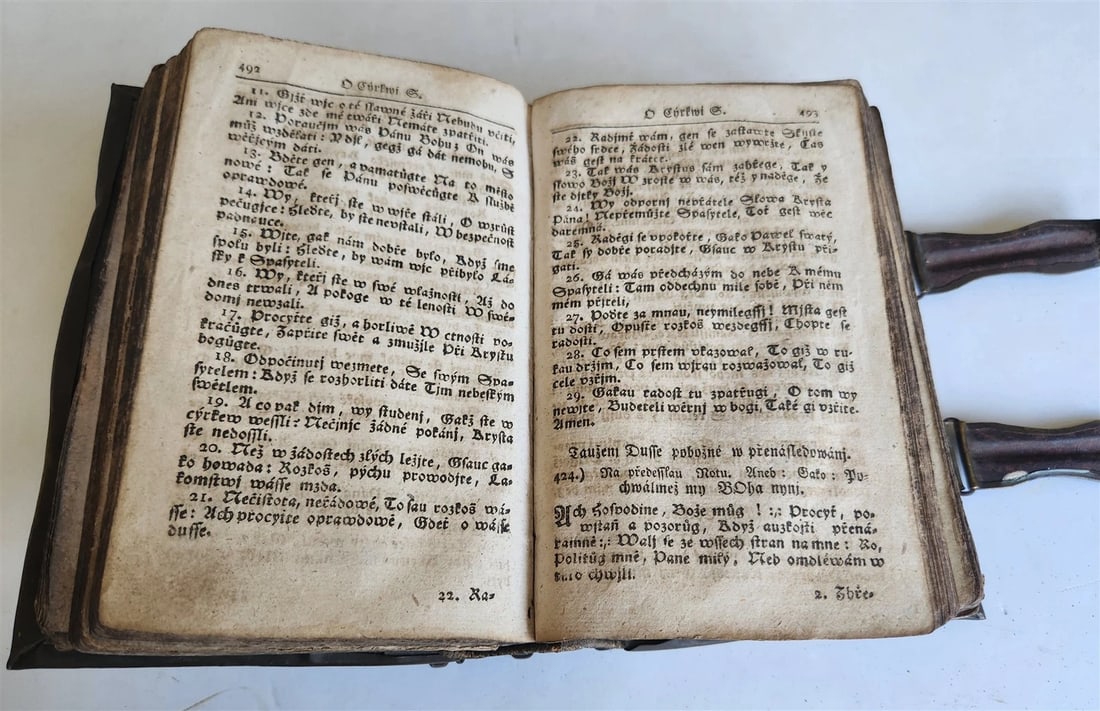 492
O Cýrkwi S.
11. Gjžť wjc o té slawné žáři Nebudu včiti,
Am wjce zde mé twáři Nemáte zpatřiti.
12. Poraučjm wás Pánu Bohu: On wás
můž wzdělati: Wdĕk, gegž gá dát nemohu, S
wětssým dáti.
13. Bděte gen, a pamatůgte Na to místo
nowé: Tak se Pánu poswěcůgte K službě
oprawdowé.
14. Wy, kteřj ste w wjře stáli, O wzrůst
pečůgice: Hleďte, by ste nevstali, W bezpečnost
padnauce.
15. Wjte, gak nám dobře bylo, Když sme
spolu byli: Hleďte, by wám wjc přibylo Lá-
sky k Spasyteli.
16. Wy, kteřj ste w swé wlažnosti, Až do
dnes trwali, A pokoge w té lenosti W swě-
domj newzali.
17. Procyťte giž, a horliwě W ctnosti po-
kračůgte, Zapřite swět a zmužile Při Krystu
bogůgte.
18. Odpočinutj wezmete, Se swým Spa-
sytelem: Když se rozhorliti dáte Tjm nebeským
swětlem.
19. A co pak djm, wy studenj, Gakž ste w
cýrkew wessli: Nečinjc žádné pokánj, Krysta
ste nedossli.
20. Než w žádostech zlých ležjte, Gsauc ga-
ko howada: Rozkoš, pýchu prowodjte, La-
komstwj wásse mzda.
21. Nečistota, neřádowé, To sau rozkoš wá-
sse: Ach procyťte oprawdowě, Gdeť o wásse
dusse.
22. Ra-
O Cýrkwi S.
493
22. Radjmť wám, gen se zastawte Skyste
swého srdce, Žádosti zlé wen wywržte, Čas
wáš gest na krátce.
23. Tak wás Krystus sám zahřege, Tak y
slowo Božj W zroste w wás, též y naděge, Že
ste djtky Božj.
24. Wy odpornj nepřátelé Slowa Krysta
Pána! Nepřemůžte Spasytele, Toť gest wěc
daremná.
25. Raděgi se vpokořte, Gako Pawel swatý,
Tak sy dobře poradjte, Gsauc w Krystu při-
gati.
26. Gá wás předcházým do nebe K mému
Spasyteli: Tam oddechnu mile sobě, Při něm
mém přjteli,
27. Poďte za mnau, neymilegssj! Mjsta gest
tu dosti, Opusťte rozkoš wezdegssj, Chopte se
radosti.
28. Co sem prstem vkazowal, To giž w ru-
kau držjm, Co sem wjrau rozwažowal, To giž
cele vzřjm.
29. Gakau radost tu zpatřugi, O tom wy
newjte, Budeteli wěrnj w bogi, Také gi vzřjte.
Amen.
Taužení Dusse pobožné w přenásledowánj.
424.) Na předesslau Notu. Aneb: Gako: Po-
chwálmež my BOha nynj.
Ach Hospodine, Bože můg! :,: Procyť, po-
wstaň a pozorůg, Když auzkosti přená-
ramné:,: Walj se ze wssech stran na mne: Ro,
Politůg mně, Pane milý, Neb omdléwám w
tuto chwjli.
2. Zhře-